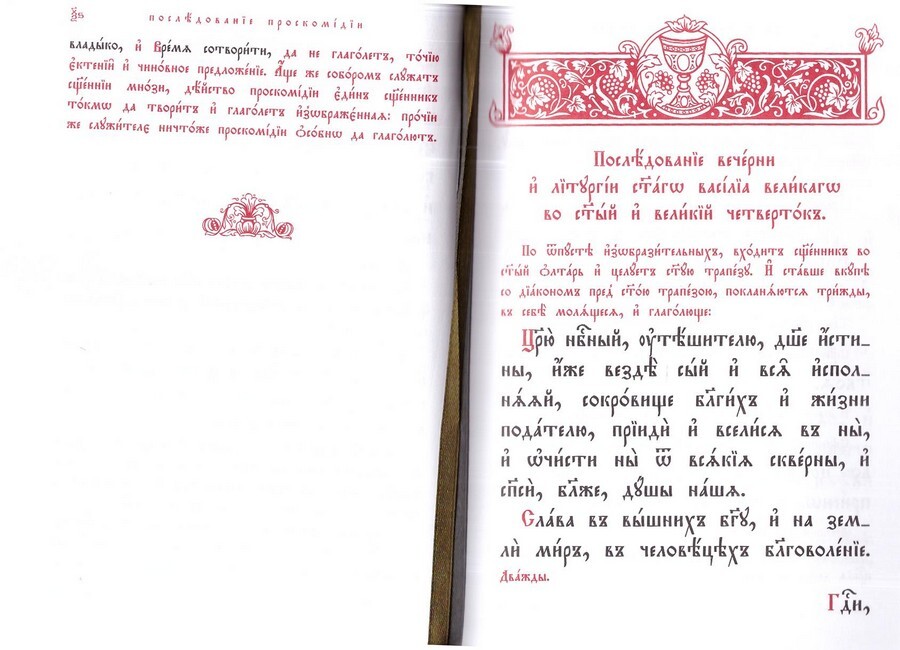 послѣ́дованїе проскомі́дїи
влады́ко, и҆ Вре́мѧ сотвори́ти, да не глаго́летъ, то́чїю
є҆ктенїѝ и҆ чино́вное предложе́нїе. А҆́ще же собо́ромъ слꙋ́жатъ
сщ҃е́нницы мно́зи, дѣ́йство проскомі́дїи є҆ди́нъ сщ҃е́нникъ
то́кмѡ да твори́тъ и҆ глаго́летъ и҆зѡбраже́ннаѧ: про́чїи
же слꙋжи́телє ничто́же проскомі́дїи ѻ҆со́бнѡ да глаго́лютъ.
Послѣ́дованїе вече́рни
и҆ лїтꙋргі́и ст҃а́гѡ васі́лїа вели́кагѡ
во ст҃ы́й и҆ вели́кїй четверто́къ.
По ѿпꙋ́стѣ и҆з̾ѡбрази́тельныхъ, вхо́дитъ сщ҃е́нникъ во
ст҃ы́й ѻ҆лта́рь и҆ целꙋ́етъ ст҃ꙋ́ю трапе́зꙋ. И҆ ста́вше вкꙋ́пѣ
со дїа́кономъ пред̾ ст҃о́ю трапе́зою, покланѧ́ютсѧ три́жды,
въ себѣ̀ молѧ́щесѧ, и҆ глаго́люще:
Цр҃ю̀ нбⷭ҇ный, ᲂу҆тѣ́шителю, дш҃е и҆́сти_
ны, и҆́же вездѣ̀ сы́й и҆ всѧ̑ и҆спол_
нѧ́ѧй, сокро́вище бл҃ги́хъ и҆ жи́зни
пода́телю, прїидѝ и҆ всели́сѧ въ ны̀,
и҆ ѡ҆чи́сти ны̀ ѿ всѧ́кїѧ скве́рны, и҆
сп҃сѝ, бл҃же, дꙋ́шы на́шѧ.
Сла́ва въ вы́шнихъ бг҃ꙋ, и҆ на зем_
лѝ ми́ръ, въ человѣ́цѣхъ бл҃говоле́нїе.
Два́жды.
Гдⷭ҇и,